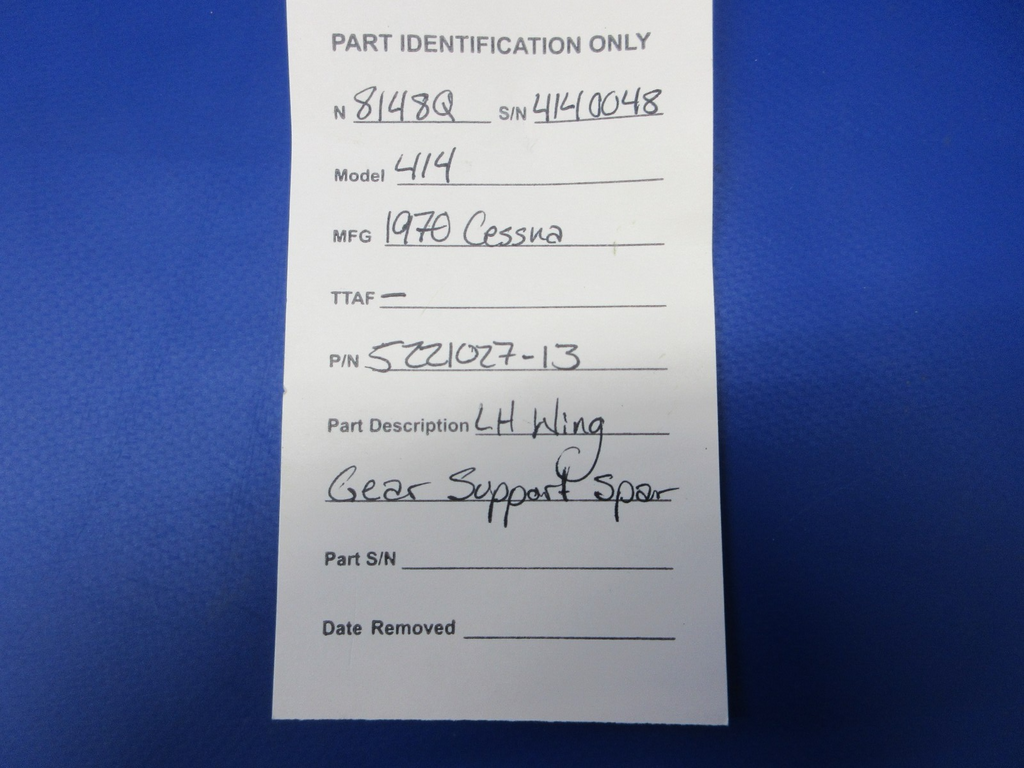 PART IDENTIFICATION ONLY
N 8148Q S/N 4140048
Model 414
MFG 1970 Cessna
TTAF —
P/N 5221027-13
Part Description LH Wing
Gear Support Spar
Part S/N
Date Removed